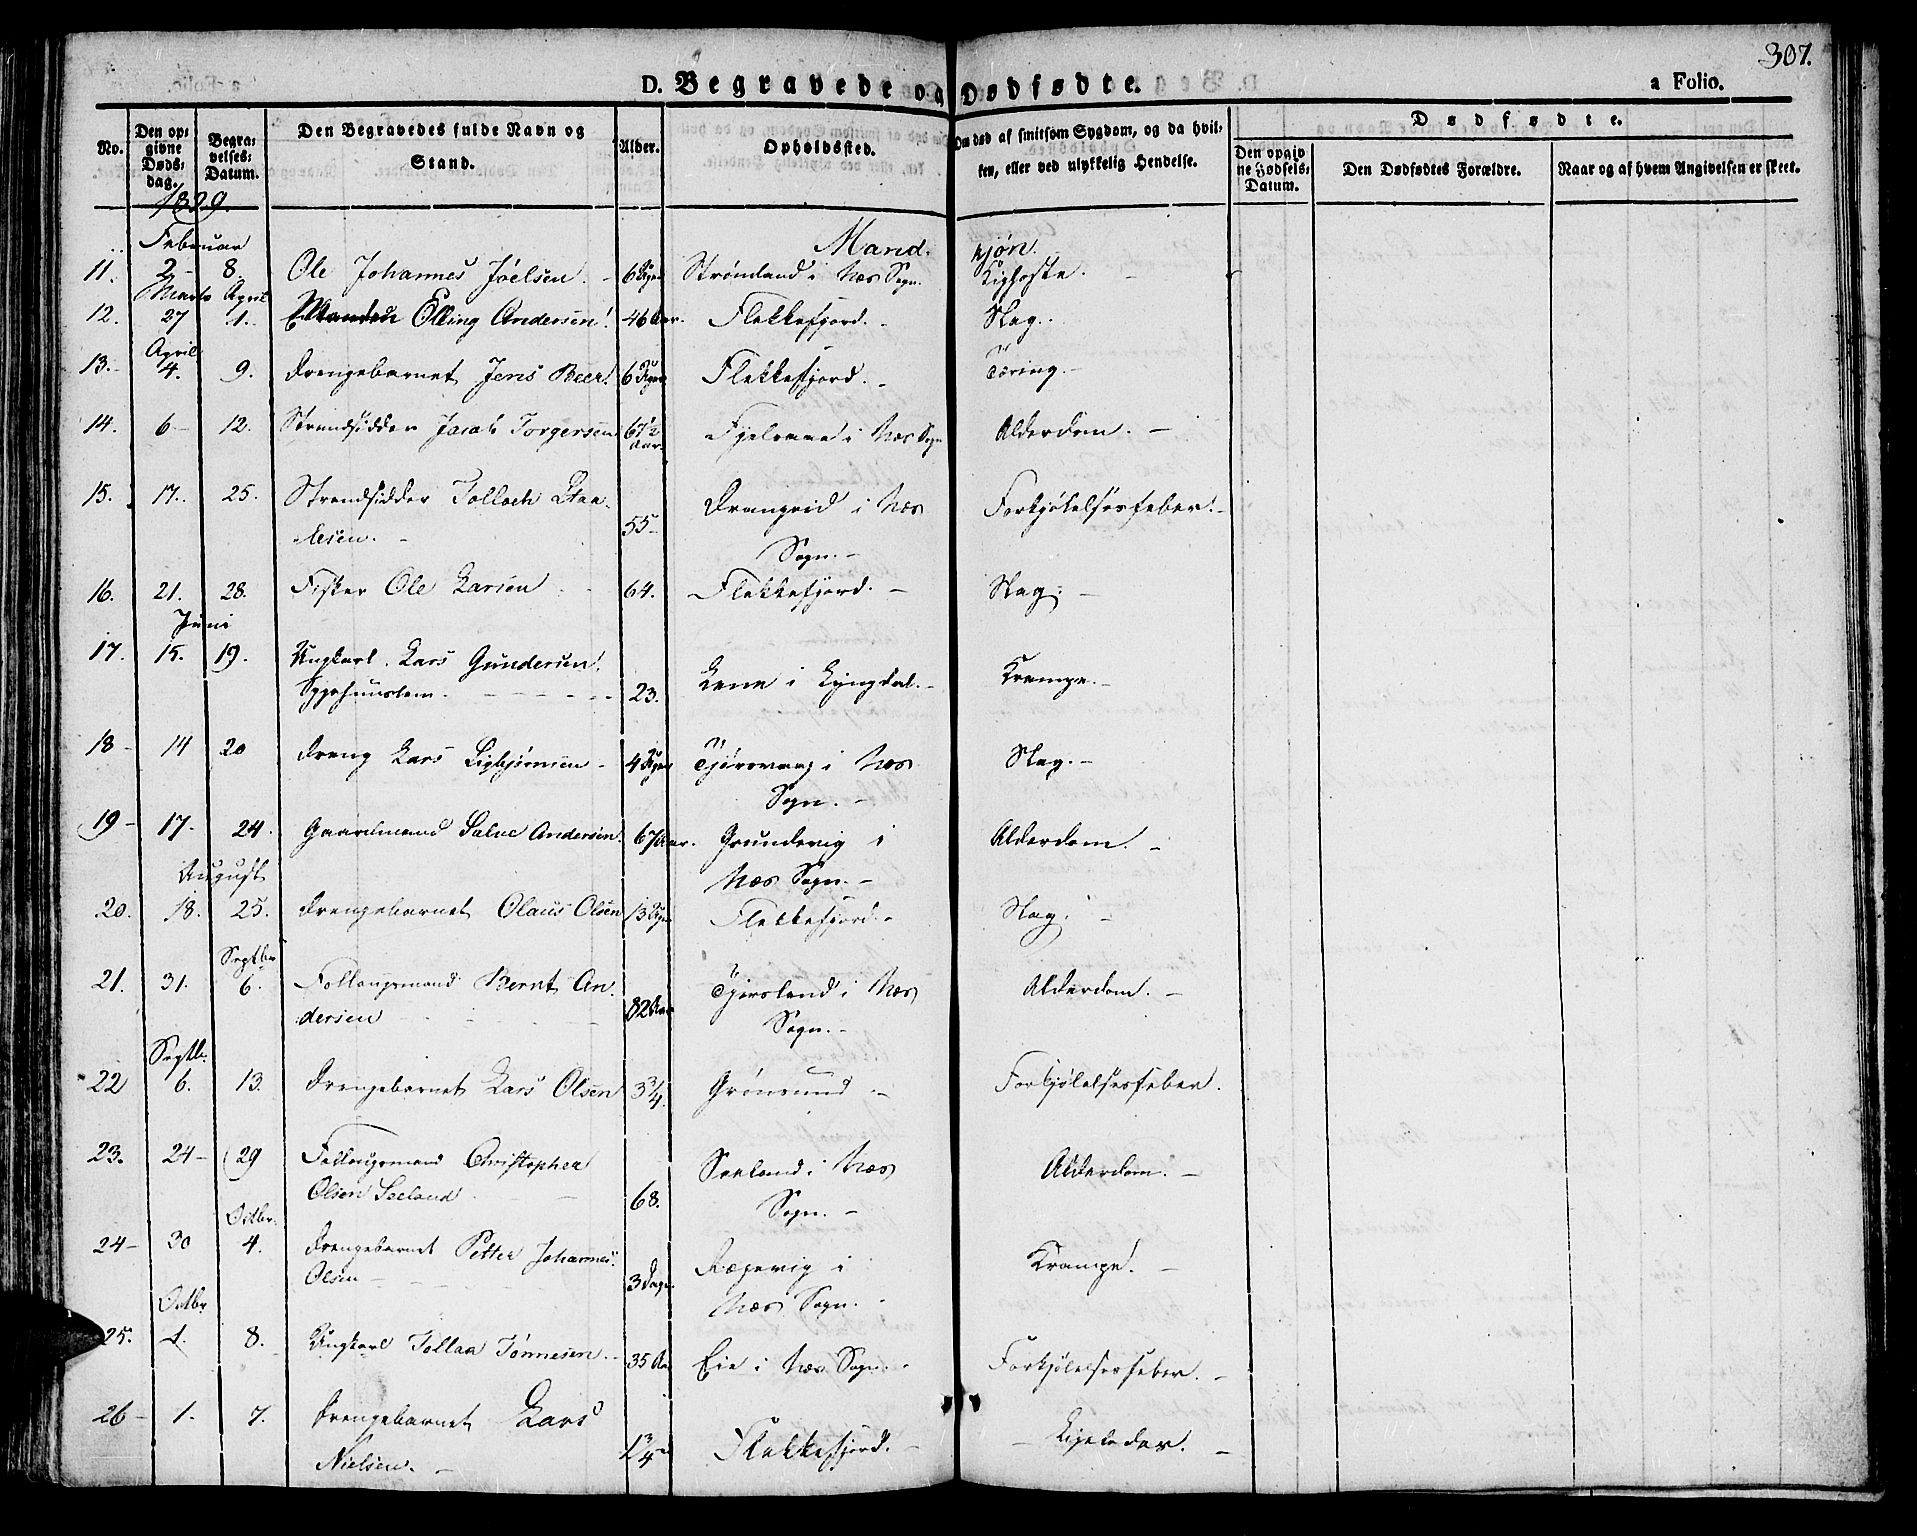 307.
D. Begravede og Dødfødte.
a Folio.
No.
Den opgivne Dødsdag.
Begravelses-Datum.
Den Begravedes fulde Navn og Stand.
Alder.
Opholdssted.
Om død af smitsom Sygdom, og da hvilken, eller ved ulykkelig Hendelse.
Dødfødte.
Den opgivne Fødsels-Datum.
Den Dødfødtes Forældre.
Naar og af hvem Angivelsen er skeet.
1829.
Februar
Mandkjøn.
11. 2- 8. Ole Johannes Joelsen. 6 Strømland i Næs Sogn. Kighoste.
Marts April
12. 27 1. Elling Andersen. 46 Aar. Flekkefjord. Slag.
April
13. 4. 9. Drengebarnet Jens Beer. 6 Flekkefjord. Tæring.
14. 6- 12. Strandsidder Jacob Torgersen 67½ Aar i Næs Sogn Alderdom.
15. 17. 25. Strandsidder Tollach 55- Drangeid i Næs Forkjølelsesfeber.
Sogn.
16. 21. 28. Fisker Ole Larsen 64. Flekkefjord. Slag.
Juni
17. 15. 19. Ungkarl. Lars Gundersen. Lene i Lyngdal. Krampe.
23.
18- 14 20 Dreng Lars Sigbjørnsen 4 i Næs Slag.
Sogn.
19- 17- 24. Gaardmand Salve Andersen. 67 Aar. Grundevig i Alderdom.
Næs Sogn.
August
20. 18. 25. Drengebarnet Olaus Olsen 13 Flekkefjord. Slag.
Septbr
21. 31. 6. Follaugsmand Bernt An-
dersen 82 Aar Tjørsland i Næs Alderdom.
Sogn.
Septbr.
22 6. 13. Drengebarnet Lars Olsen 3¾. Grønsund Forkjølelsesfeber.
23. 24- 29 Follaugsmand Christopher
Olsen Seeland 68. Seeland i Næs Alderdom.
Sogn.
Octbr.
24- 30 4. Drengebarnet Petter Johannes
Olsen 3 Dage Rægevig i Krampe.
Næs Sogn.
Octbr
25. 1. 8. Ungkarl Tollaa Tønnesen. 35 Aar Eie i Næs Sogn. Forkjølelsesfeber.
26- 1. 7. Drengebarnet Lars
Nielsen. 1¾ Flekkefjord.